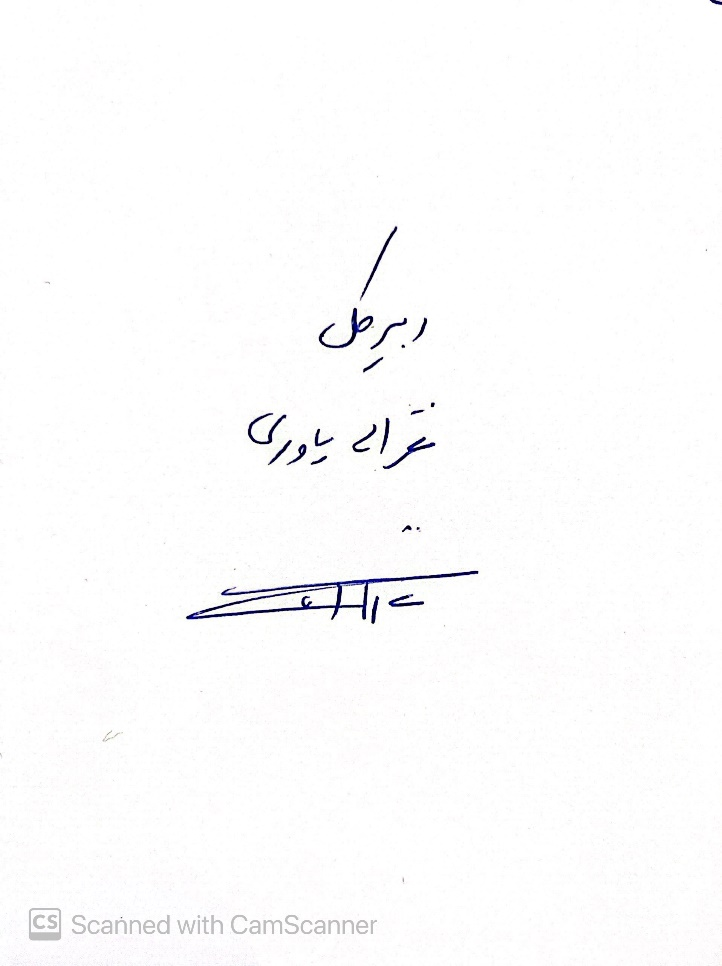 دبیرکل
غزالی یاوری
CS Scanned with CamScanner